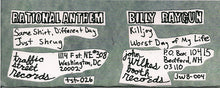 RATIONAL ANTHEM
Same Shirt, Different Day
Just Shrug
traffic street records
1114 F st. NE #308
Washington, DC
20002
tsr-026
BILLY RAYGUN
Killjoy
Worst Day of My Life
John Wilkes Booth records
P.O. Box 10415
Bedford, NH
03110
JWB-004